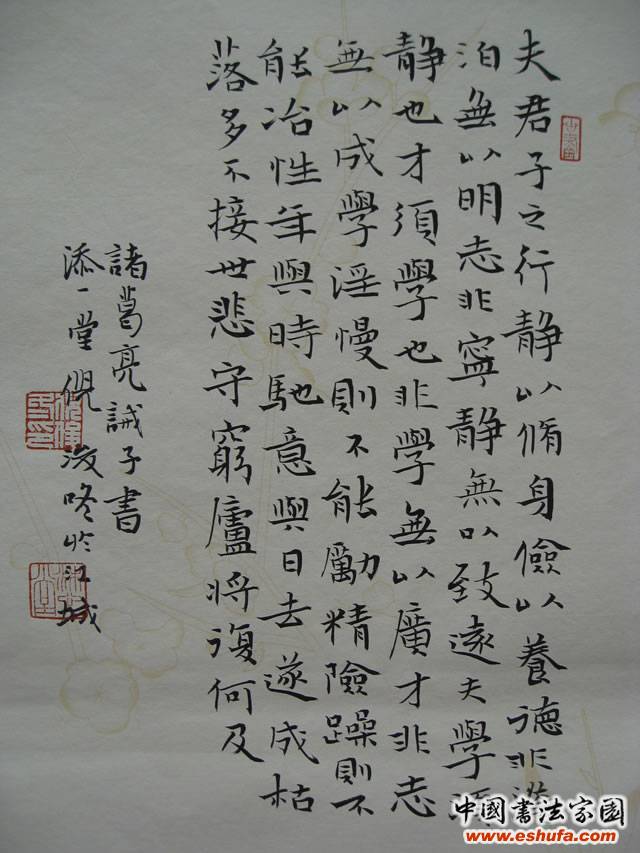 夫君子之行静以脩身儉以養德非澹
泊無以明志非寧静無以致遠夫學須
静也才須學也非學無以廣才非志
無以成學淫慢則不能勵精險躁則不
能冶性年與時馳意與日去遂成枯
落多不接世悲守窮廬將復何及
諸葛亮誡子書
添一堂倪 於江城
中國書法家園
www.eshufa.com